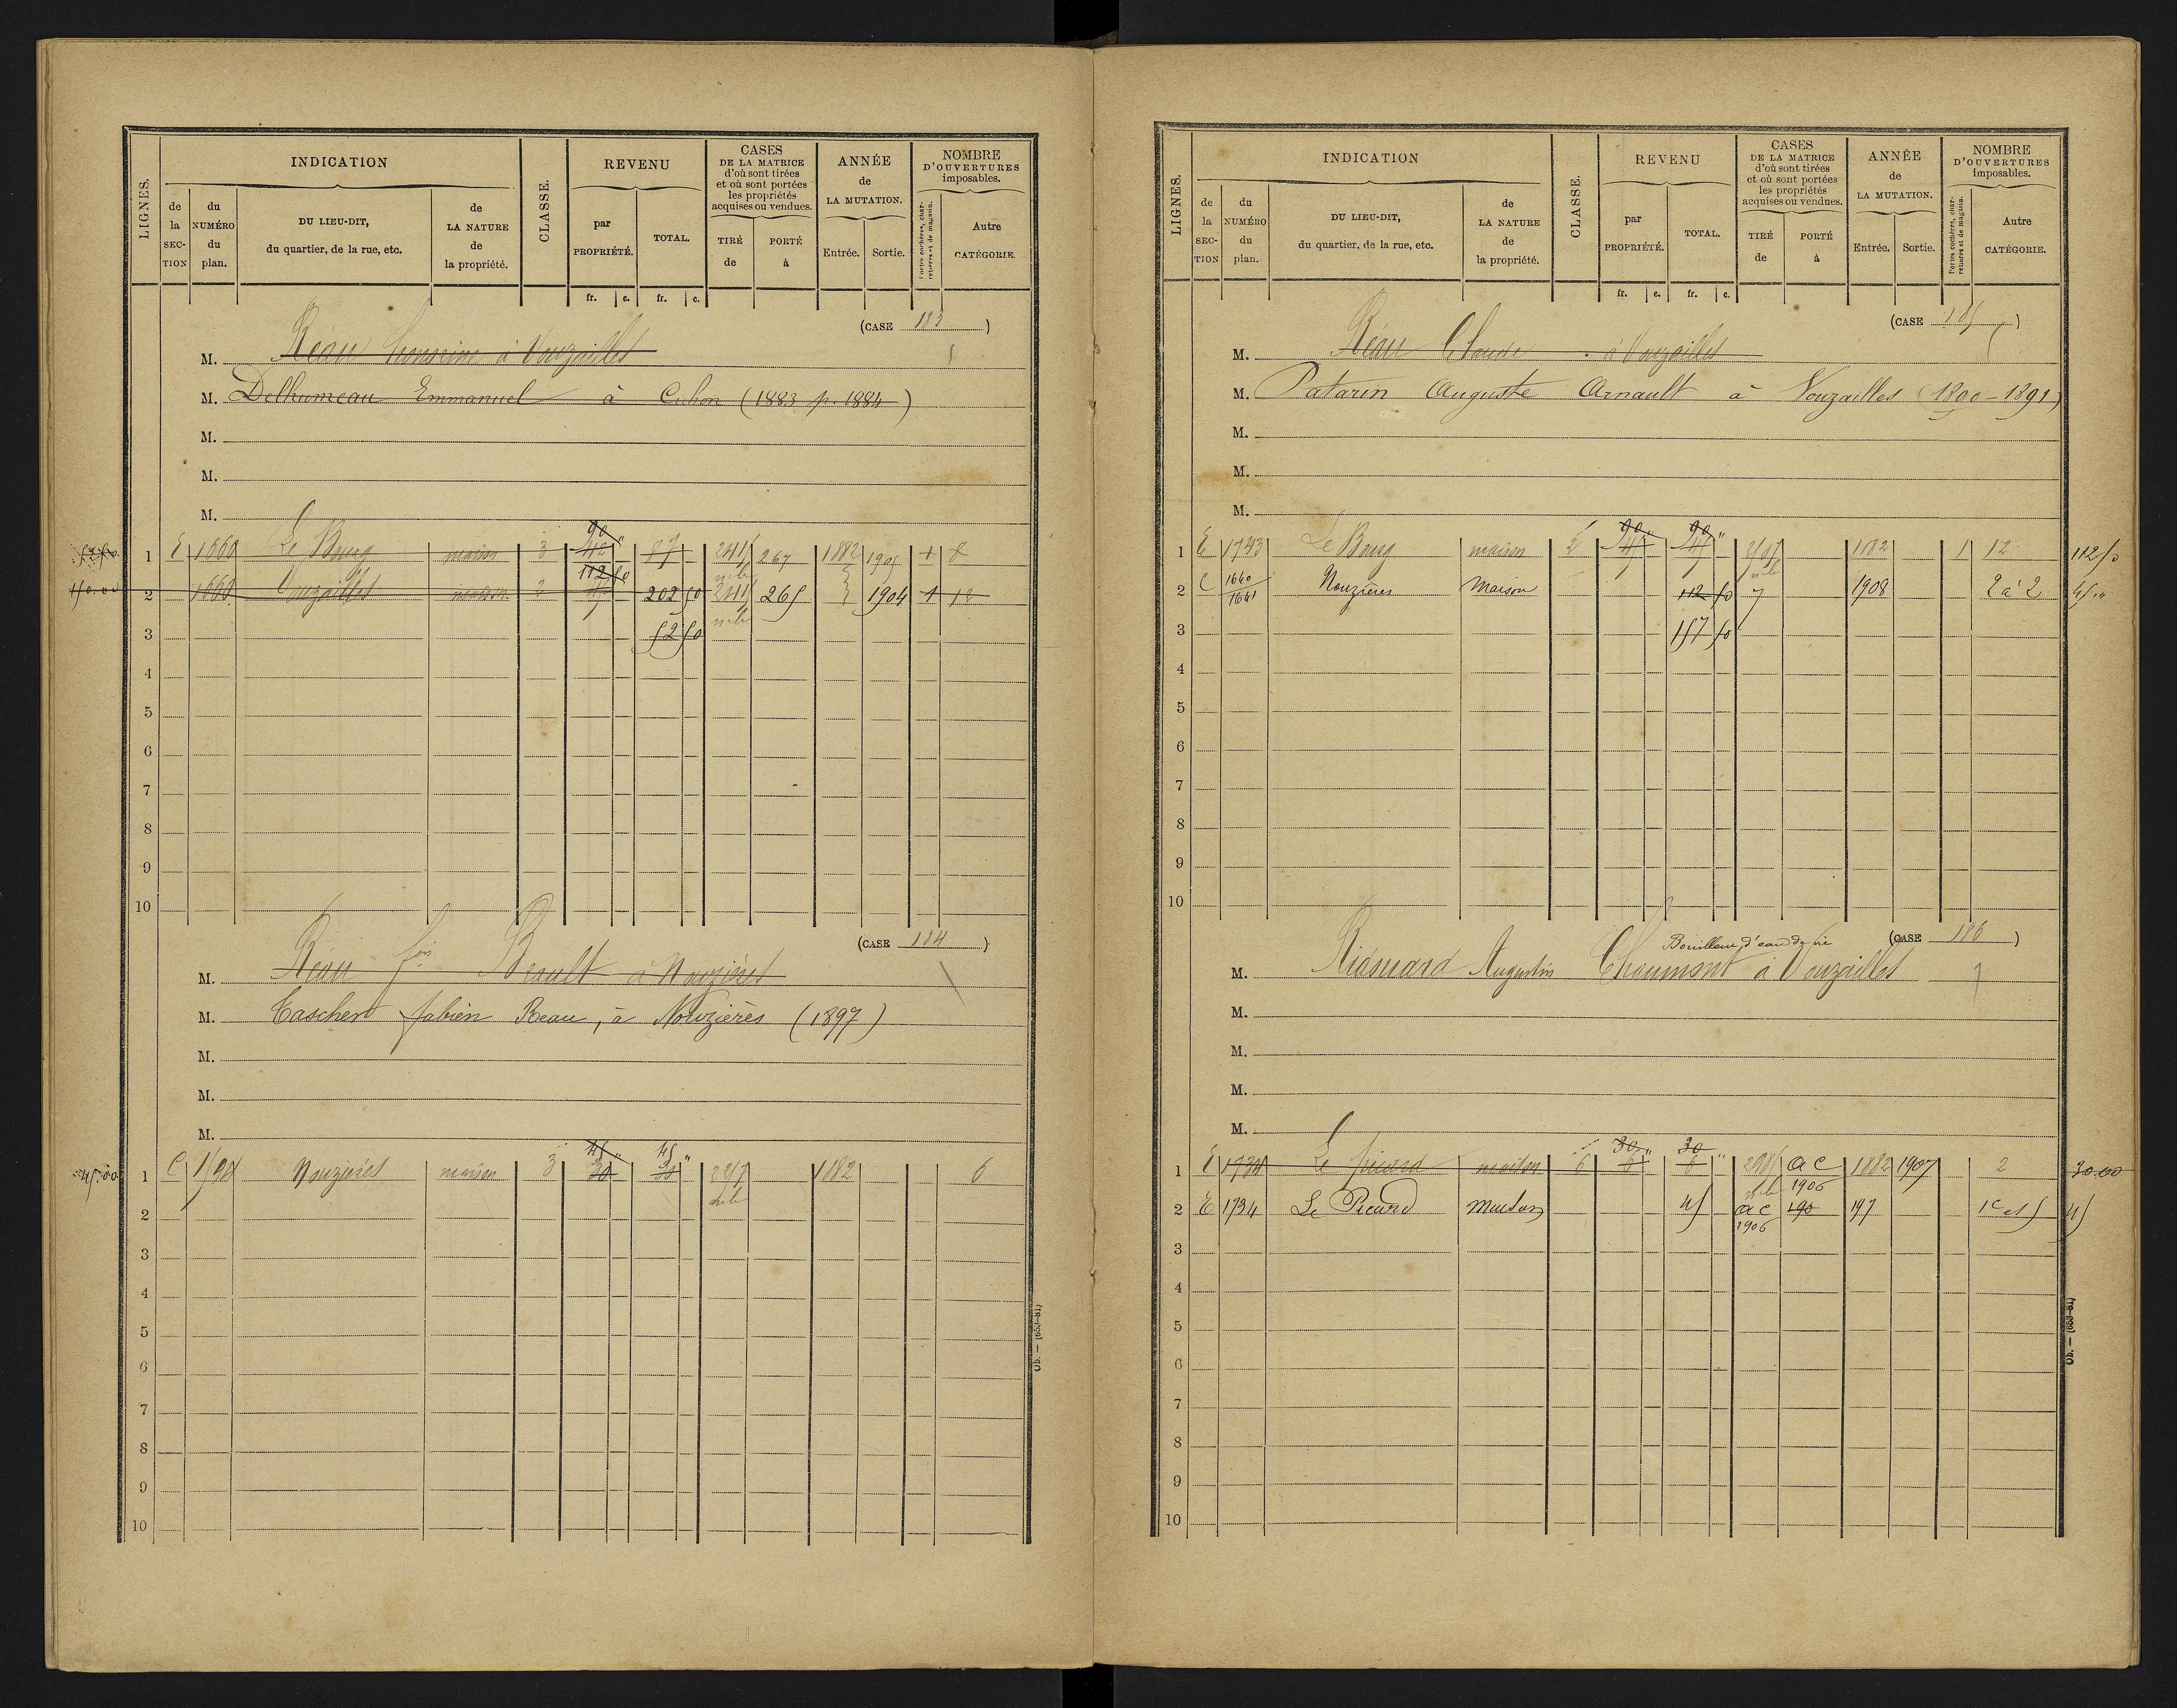 LIGNES.
INDICATION
de la SECTION
du NUMÉRO du plan.
DU LIEU-DIT, du quartier, de la rue, etc.
de LA NATURE de la propriété.
CLASSE.
REVENU
par PROPRIÉTÉ.
TOTAL.
fr. c. fr. c.
CASES DE LA MATRICE d'où sont tirées et où sont portées les propriétés acquises ou vendues.
TIRÉ de
PORTÉ à
ANNÉE de LA MUTATION.
Entrée. Sortie.
NOMBRE D'OUVERTURES imposables.
Portes cochères, charretières et de magasin.
Autre CATÉGORIE.
(CASE 183)
M. Réau à Vouzailles
M. Delhumeau Emmanuel à Cuhon (1883 p. 1884)
M.
M.
M.
52 50 1 E 1660 Le Bourg maison 3 90 42 87 2415 267 1882 1905 1 8
150.00 2 1660 Vouzailles maison 2 112 50 45 202 50 2415 265 1904 1 12
3 52 50
4
5
6
7
8
9
10
(CASE 184)
M. Réau fois Beault à Nouzières
M. Taschert fabien Reau, à Nouzières (1897)
M.
M.
M.
45.00 1 C 1590 Nouzières maison 3 45 30 45 30 2217 1882 6
2
3
4
5
6
7
8
9
10
Ob. — (653-81)
LIGNES.
INDICATION
de la SECTION
du NUMÉRO du plan.
DU LIEU-DIT, du quartier, de la rue, etc.
de LA NATURE de la propriété.
CLASSE.
REVENU
par PROPRIÉTÉ.
TOTAL.
fr. c. fr. c.
CASES DE LA MATRICE d'où sont tirées et où sont portées les propriétés acquises ou vendues.
TIRÉ de
PORTÉ à
ANNÉE de LA MUTATION.
Entrée. Sortie.
NOMBRE D'OUVERTURES imposables.
Portes cochères, charretières et de magasin.
Autre CATÉGORIE.
(CASE 185)
M. Réau Claude à Vouzailles
M. Patarin Auguste Arnault à Vouzailles (1890-1891)
M.
M.
M.
1 E 1743 Le Bourg maison 2 90 45 90 45 1882 1 12 112 50
2 C 1640 1641 Nouzières Maison 112 50 7 1908 2 à 2 45
3 157 50
4
5
6
7
8
9
10
(CASE 186)
Bouilleur d'eau de vie
M. Augustin Chaumont à Vouzailles
M.
M.
M.
M.
1 E 1734 Le picard maison 6 30 6 30 6 ac 1906 1882 1907 2 30.00
2 E 1734 Le Picard Maison 45 ac 1906 190 197 45
3
4
5
6
7
8
9
10
Ob. — (653-81)